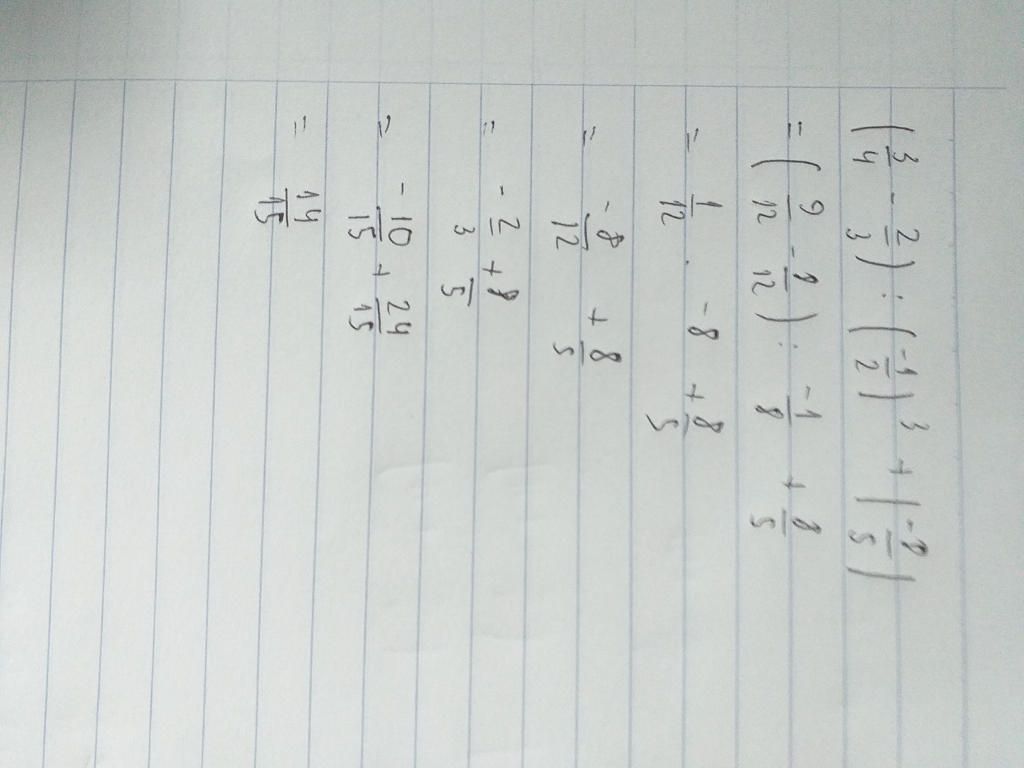 (3/4 - 2/3) : (-1/2)^3 + |-8/5|
= (9/12 - 8/12) : -1/8 + 8/5
= 1/12 . -8 + 8/5
= -8/12 + 8/5
= -2/3 + 8/5
= -10/15 + 24/15
= 14/15